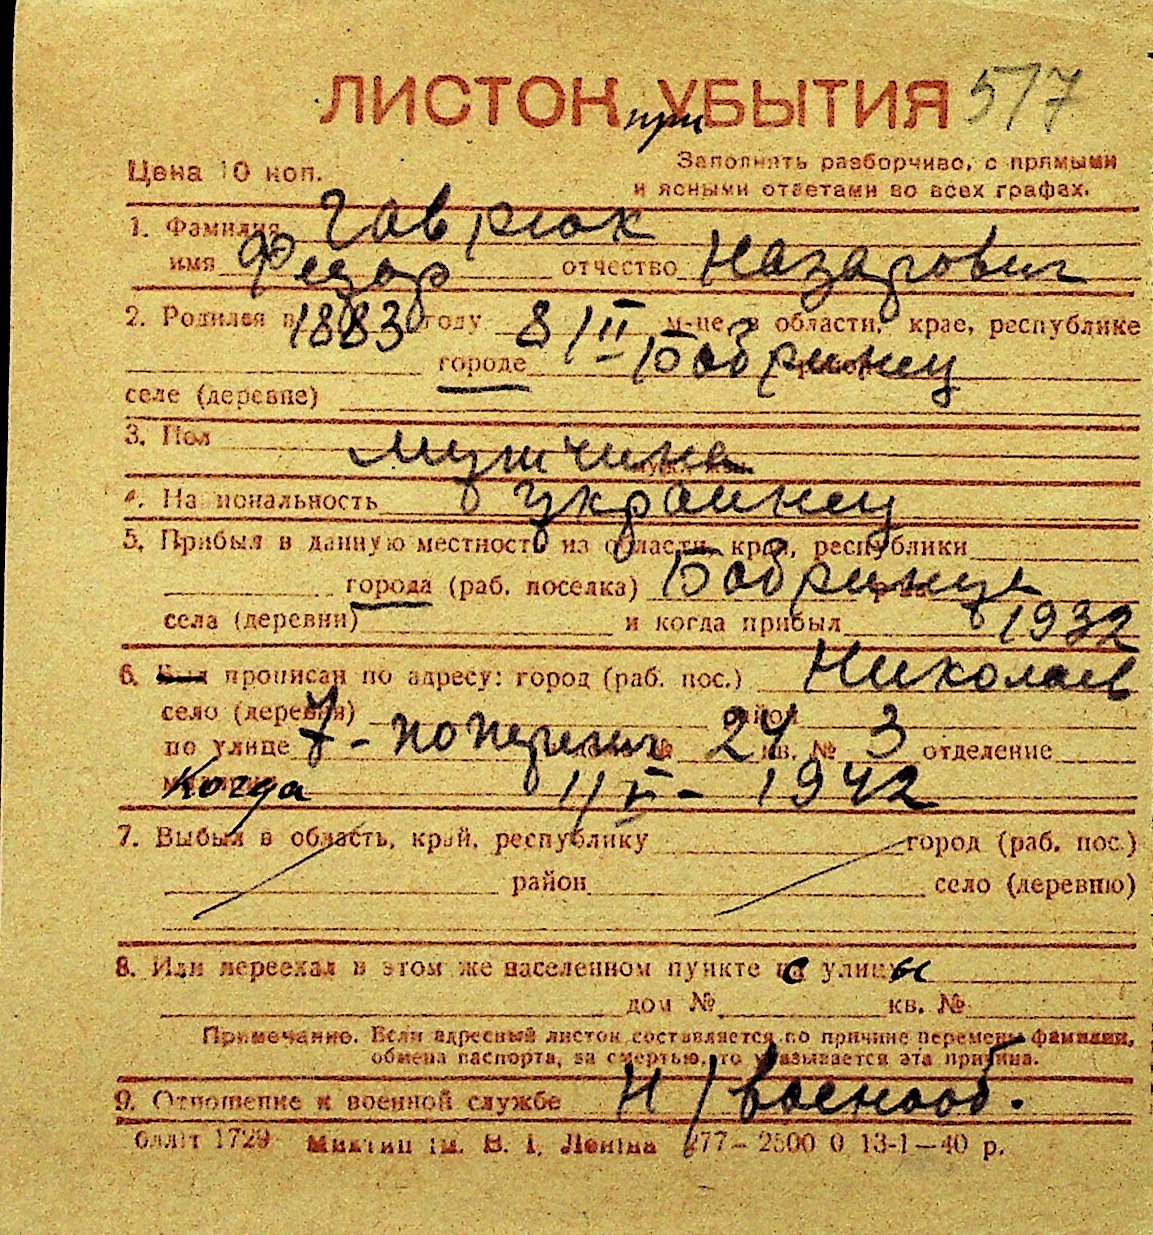 ЛИСТОК при УБЫТИЯ 517
Цена 10 коп.
Заполнять разборчиво, с прямыми
и ясными ответами во всех графах.
1. Фамилия Гаврюк
имя Федор отчество Назарович
2. Родился в 1883 году 8/II м-це, в области, крае, республике
городе Бобринец
селе (деревне)
3. Пол мужчина
4. Национальность украинец
5. Прибыл в данную местность из области, края, республики
города (раб. поселка) Бобринца
села (деревни) и когда прибыл 1932
6. Был прописан по адресу: город (раб. пос.) Николаев
село (деревня) район
по улице 7-поперечн № 24 кв. № 3 отделение
Когда 11/V- 1942
7. Выбыл в область, край, республику город (раб. пос.)
район село (деревню)
8. Или переехал в этом же населенном пункте с улицы
дом № кв. №
Примечание. Если адресный листок составляется по причине перемены фамилии,
обмена паспорта, за смертью, то указывается эта причина.
9. Отношение к военной службе н/военооб.
облліт 1729 ім. В. І. Леніна 277—2500 0 13-1—40 р.